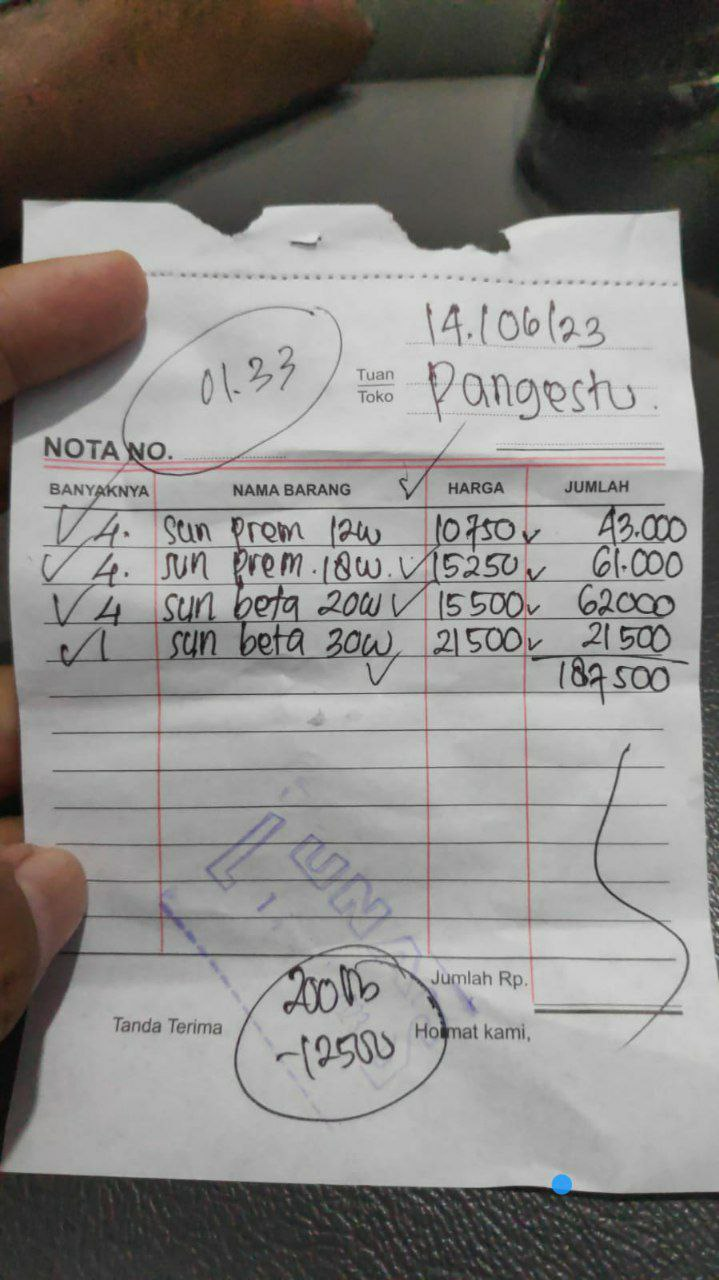 14.106/23
01.33
Tuan
Toko
Pangestu.
NOTA NO.
BANYAKNYA NAMA BARANG HARGA JUMLAH
4. sun prem 12w 10750 43.000
4. sun prem. 18w. 15250 61.000
4 sun beta 20w 15500 62000
1 sun beta 30w 21500 21500
187500
LUNAS
Jumlah Rp.
200 Rb
Tanda Terima
Hormat kami,
-12500